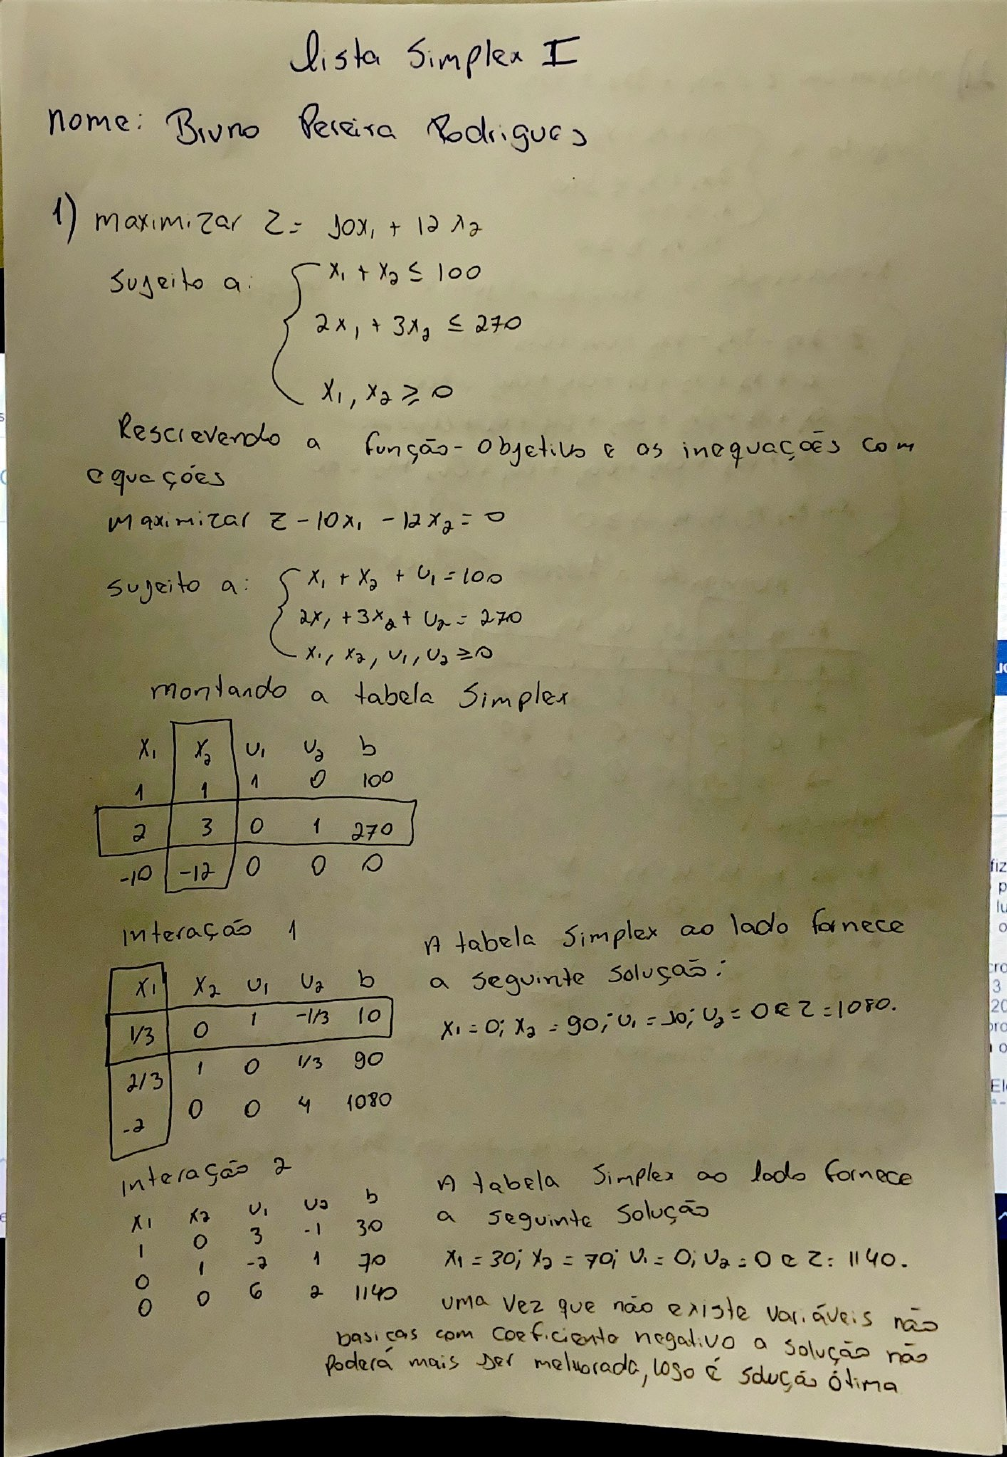 lista Simplex I
nome: Bruno Pereira Rodrigues
1) maximizar Z = 10x₁ + 12x₂
Sujeito a: x₁ + x₂ ≤ 100
2x₁ + 3x₂ ≤ 270
x₁, x₂ ≥ 0
Rescrevendo a função-objetivo e as inequações com
equações
Maximizar Z - 10x₁ - 12x₂ = 0
sujeito a: x₁ + x₂ + u₁ = 100
2x₁ + 3x₂ + u₂ = 270
x₁, x₂, u₁, u₂ ≥ 0
montando a tabela Simplex
x₁ x₂ u₁ u₂ b
1 1 1 0 100
2 3 0 1 270
-10 -12 0 0 0
interação 1
x₁ x₂ u₁ u₂ b
1/3 0 1 -1/3 10
2/3 1 0 1/3 90
-2 0 0 4 1080
A tabela Simplex ao lado fornece
a seguinte solução:
x₁ = 0; x₂ = 90; u₁ = 10; u₂ = 0 e Z = 1080.
interação 2
x₁ x₂ u₁ u₂ b
1 0 3 -1 30
0 1 -2 1 70
0 0 6 2 1140
A tabela Simplex ao lado fornece
a seguinte solução
x₁ = 30; x₂ = 70; u₁ = 0; u₂ = 0 e Z = 1140.
uma vez que não existe variáveis não
basicas com coeficiente negativo a solução não
Poderá mais ser melhorada, logo é solução ótima